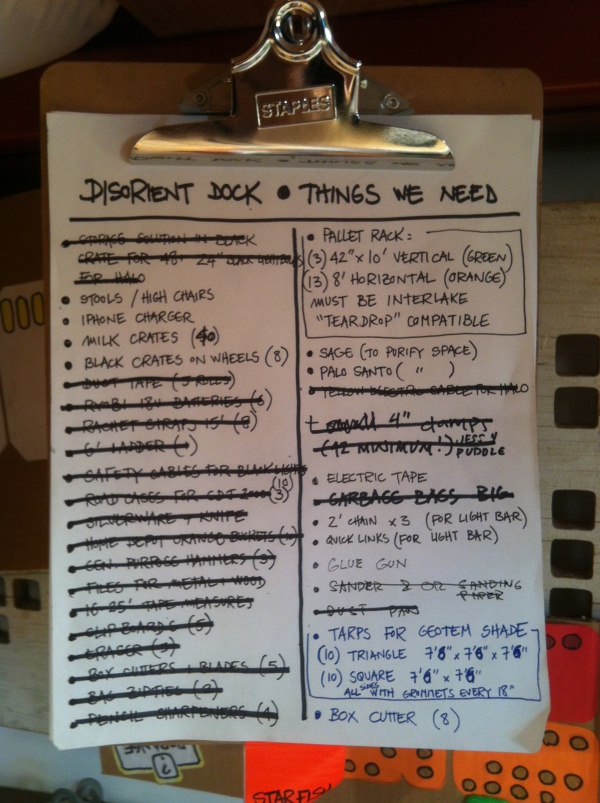 STAPLES
DISORIENT DOCK • THINGS WE NEED
• STORAGE SOLUTION IN BLACK
CRATE FOR 48+ 24" BLACK LIGHTBULBS
FOR HALO
• STOOLS / HIGH CHAIRS
• IPHONE CHARGER
• MILK CRATES (40)
• BLACK CRATES ON WHEELS (8)
• DUCT TAPE (5 ROLLS)
• RYOBI 18V BATTERIES (6)
• RACHET STRAPS 15' (8)
• 6' LADDER
• SAFETY CABLES FOR BLACK LIGHTS
(10)
• ROAD CASES FOR CDJ 2000 (3)
• SILVERWARE + KNIFE
• HOME DEPOT ORANGE BUCKETS
• GEN. PURPOSE HAMMERS (3)
• FILES FOR METAL + WOOD
• 16-25' TAPE MEASURES
• CLIPBOARDS (5)
• ERASER (3)
• BOX CUTTERS + BLADES (5)
• BAG ZIPTIES (2)
• PENCIL SHARPENERS (4)
• PALLET RACK:
(3) 42" x 10' VERTICAL (GREEN)
(13) 8' HORIZONTAL (ORANGE)
MUST BE INTERLAKE
"TEARDROP" COMPATIBLE
• SAGE (TO PURIFY SPACE)
• PALO SANTO ( " )
• YELLOW ELECTRO CABLE FOR HALO
+ small 4" clamps
(42 MINIMUM!) JESSY
PUDDLE
• ELECTRIC TAPE
• GARBAGE BAGS BIG
• 2' CHAIN x 3 (FOR LIGHT BAR)
• QUICK LINKS (FOR LIGHT BAR)
• GLUE GUN
• SANDER 2 OR SANDING
PAPER
• DUST PAN
• TARPS FOR GEOTEM SHADE
(10) TRIANGLE 7'6" x 7'6" x 7'6"
(10) SQUARE 7'6" x 7'6"
ALL SIDES WITH GROMMETS EVERY 18"
• BOX CUTTER (8)